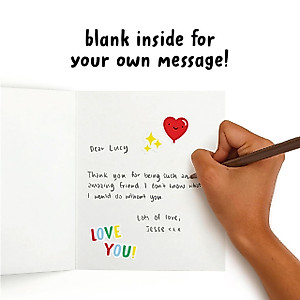 blank inside for
your own message!
Dear Lucy
Thank you for being such an
amazing friend. I don't know what
I would do without you
Lots of love,
Jesse x x x
LOVE
YOU!